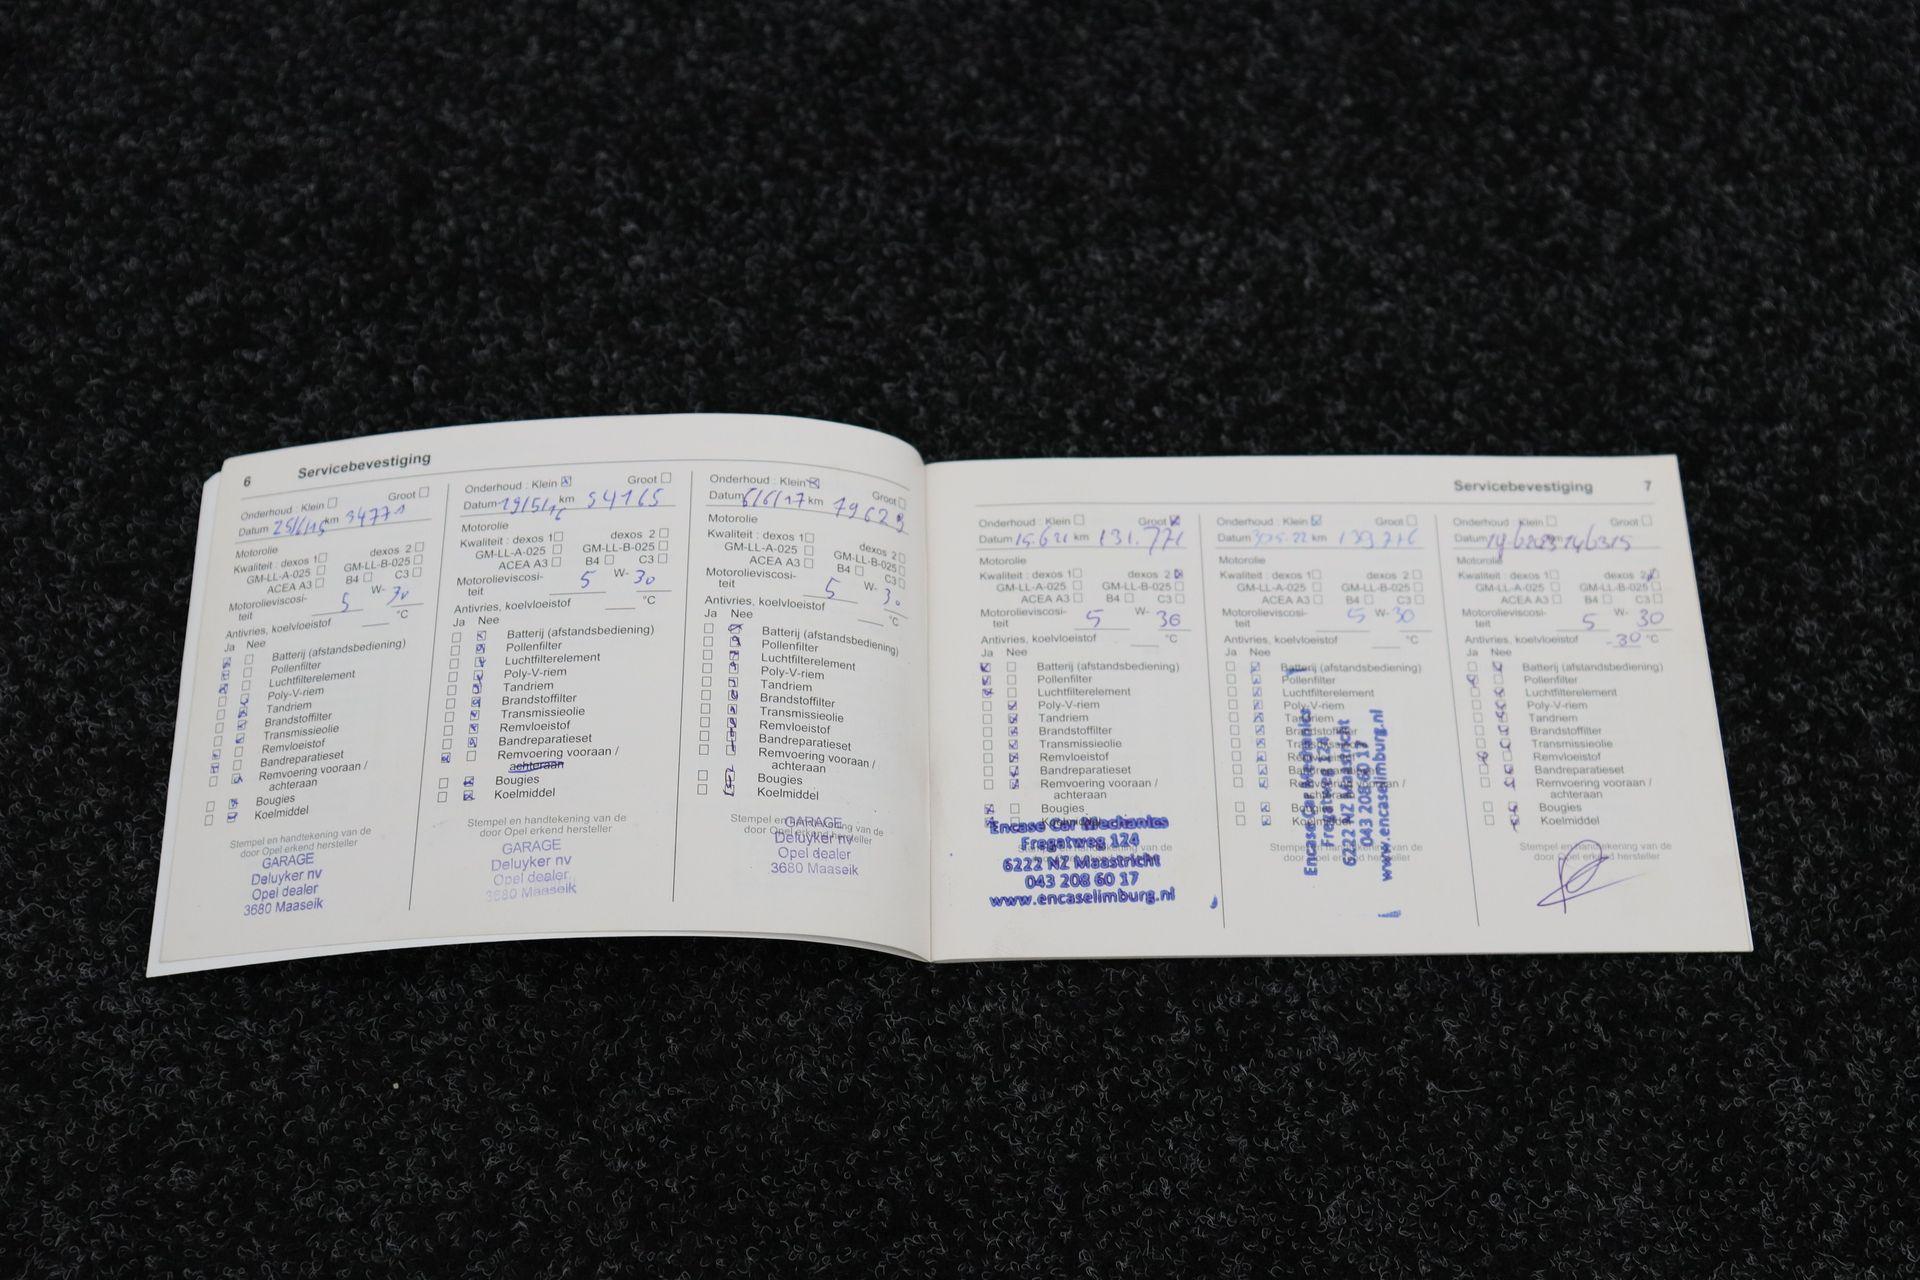 6 Servicebevestiging
Onderhoud : Klein Groot
Datum 25/6/15 km 34771
Motorolie
Kwaliteit : dexos 1 dexos 2
GM-LL-A-025 GM-LL-B-025
ACEA A3 B4 C3
Motorolieviscosi- 5 W- 30
teit
Antivries, koelvloeistof °C
Ja Nee
Batterij (afstandsbediening)
Pollenfilter
Luchtfilterelement
Poly-V-riem
Tandriem
Brandstoffilter
Transmissieolie
Remvloeistof
Bandreparatieset
Remvoering vooraan /
achteraan
Bougies
Koelmiddel
Stempel en handtekening van de
door Opel erkend hersteller
GARAGE
Deluyker nv
Opel dealer
3680 Maaseik
Onderhoud : Klein Groot
Datum 19/5/16 km 54165
Motorolie
Kwaliteit : dexos 1 dexos 2
GM-LL-A-025 GM-LL-B-025
ACEA A3 B4 C3
Motorolieviscosi- 5 W- 30
teit
Antivries, koelvloeistof °C
Ja Nee
Batterij (afstandsbediening)
Pollenfilter
Luchtfilterelement
Poly-V-riem
Tandriem
Brandstoffilter
Transmissieolie
Remvloeistof
Bandreparatieset
Remvoering vooraan /
achteraan
Bougies
Koelmiddel
Stempel en handtekening van de
door Opel erkend hersteller
GARAGE
Deluyker nv
Opel dealer
3680 Maaseik
Onderhoud : Klein Groot
Datum 6/6/17 km 79623
Motorolie
Kwaliteit : dexos 1 dexos 2
GM-LL-A-025 GM-LL-B-025
ACEA A3 B4 C3
Motorolieviscosi- 5 W- 30
teit
Antivries, koelvloeistof °C
Ja Nee
Batterij (afstandsbediening)
Pollenfilter
Luchtfilterelement
Poly-V-riem
Tandriem
Brandstoffilter
Transmissieolie
Remvloeistof
Bandreparatieset
Remvoering vooraan /
achteraan
Bougies
Koelmiddel
Stempel en handtekening van de
door Opel erkend hersteller
GARAGE
Deluyker nv
Opel dealer
3680 Maaseik
Servicebevestiging 7
Onderhoud : Klein Groot
Datum 15.6 21 km 131.771
Motorolie
Kwaliteit : dexos 1 dexos 2
GM-LL-A-025 GM-LL-B-025
ACEA A3 B4 C3
Motorolieviscosi- 5 W- 30
teit
Antivries, koelvloeistof °C
Ja Nee
Batterij (afstandsbediening)
Pollenfilter
Luchtfilterelement
Poly-V-riem
Tandriem
Brandstoffilter
Transmissieolie
Remvloeistof
Bandreparatieset
Remvoering vooraan /
achteraan
Bougies
Koelmiddel
Encase Car Mechanics
Fregatweg 124
6222 NZ Maastricht
043 208 60 17
www.encaselimburg.nl
Onderhoud : Klein Groot
Datum km
Motorolie
Kwaliteit : dexos 1 dexos 2
GM-LL-A-025 GM-LL-B-025
ACEA A3 B4 C3
Motorolieviscosi- 5 W- 30
teit
Antivries, koelvloeistof °C
Ja Nee
Batterij (afstandsbediening)
Pollenfilter
Luchtfilterelement
Poly-V-riem
Tandriem
Brandstoffilter
Transmissieolie
Remvloeistof
Bandreparatieset
Remvoering vooraan /
achteraan
Bougies
Koelmiddel
Stempel en handtekening van de
door Opel erkend hersteller
Encase Car Mechanics
Fregatweg 124
6222 NZ Maastricht
043 208 60 17
www.encaselimburg.nl
Onderhoud : Klein Groot
Datum 146315
Motorolie
Kwaliteit : dexos 1 dexos 2
GM-LL-A-025 GM-LL-B-025
ACEA A3 B4 C3
Motorolieviscosi- 5 W- 30
teit
Antivries, koelvloeistof -30 °C
Ja Nee
Batterij (afstandsbediening)
Pollenfilter
Luchtfilterelement
Poly-V-riem
Tandriem
Brandstoffilter
Transmissieolie
Remvloeistof
Bandreparatieset
Remvoering vooraan /
achteraan
Bougies
Koelmiddel
Stempel en handtekening van de
door Opel erkend hersteller